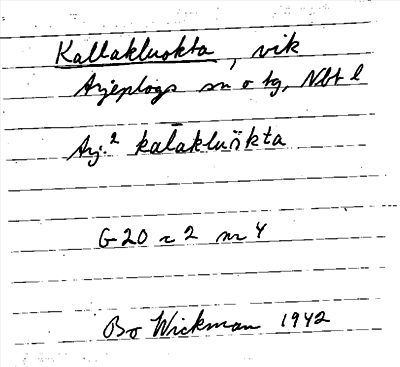 Kallakluokta, vik
Arjeplogs sn o tg, Nbt l
Arj.² kalaklūäkta
G 20 r 2 nr 4
Bo Wickman 1942